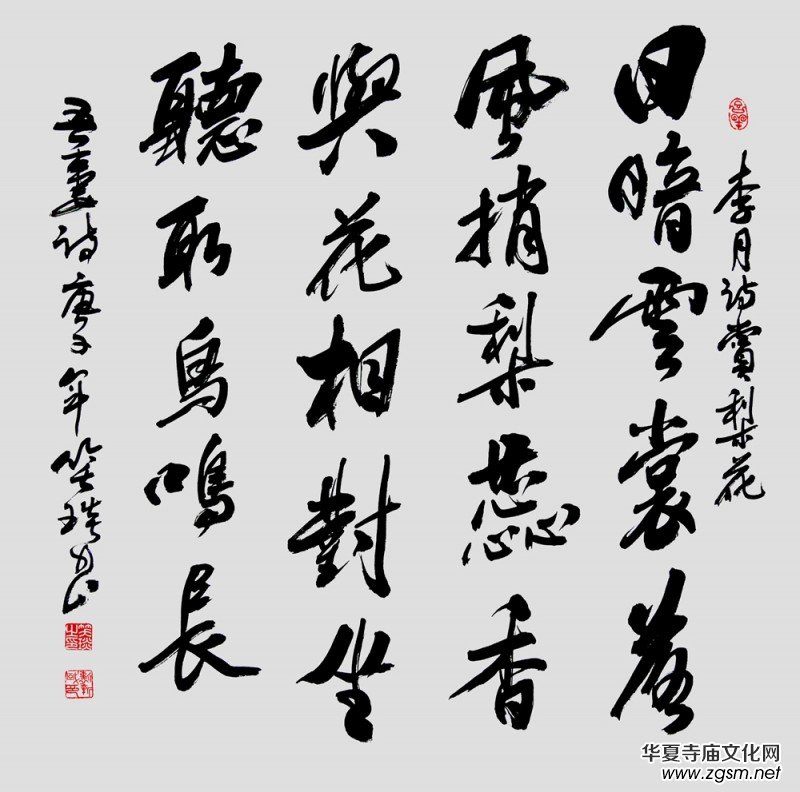 李月诗賞梨花
日暗雲裳
風捎梨蕊香
與花相對坐
聽取鳥鳴長
吾妻诗庚子年笑
华夏寺庙文化网
www.zgsm.net